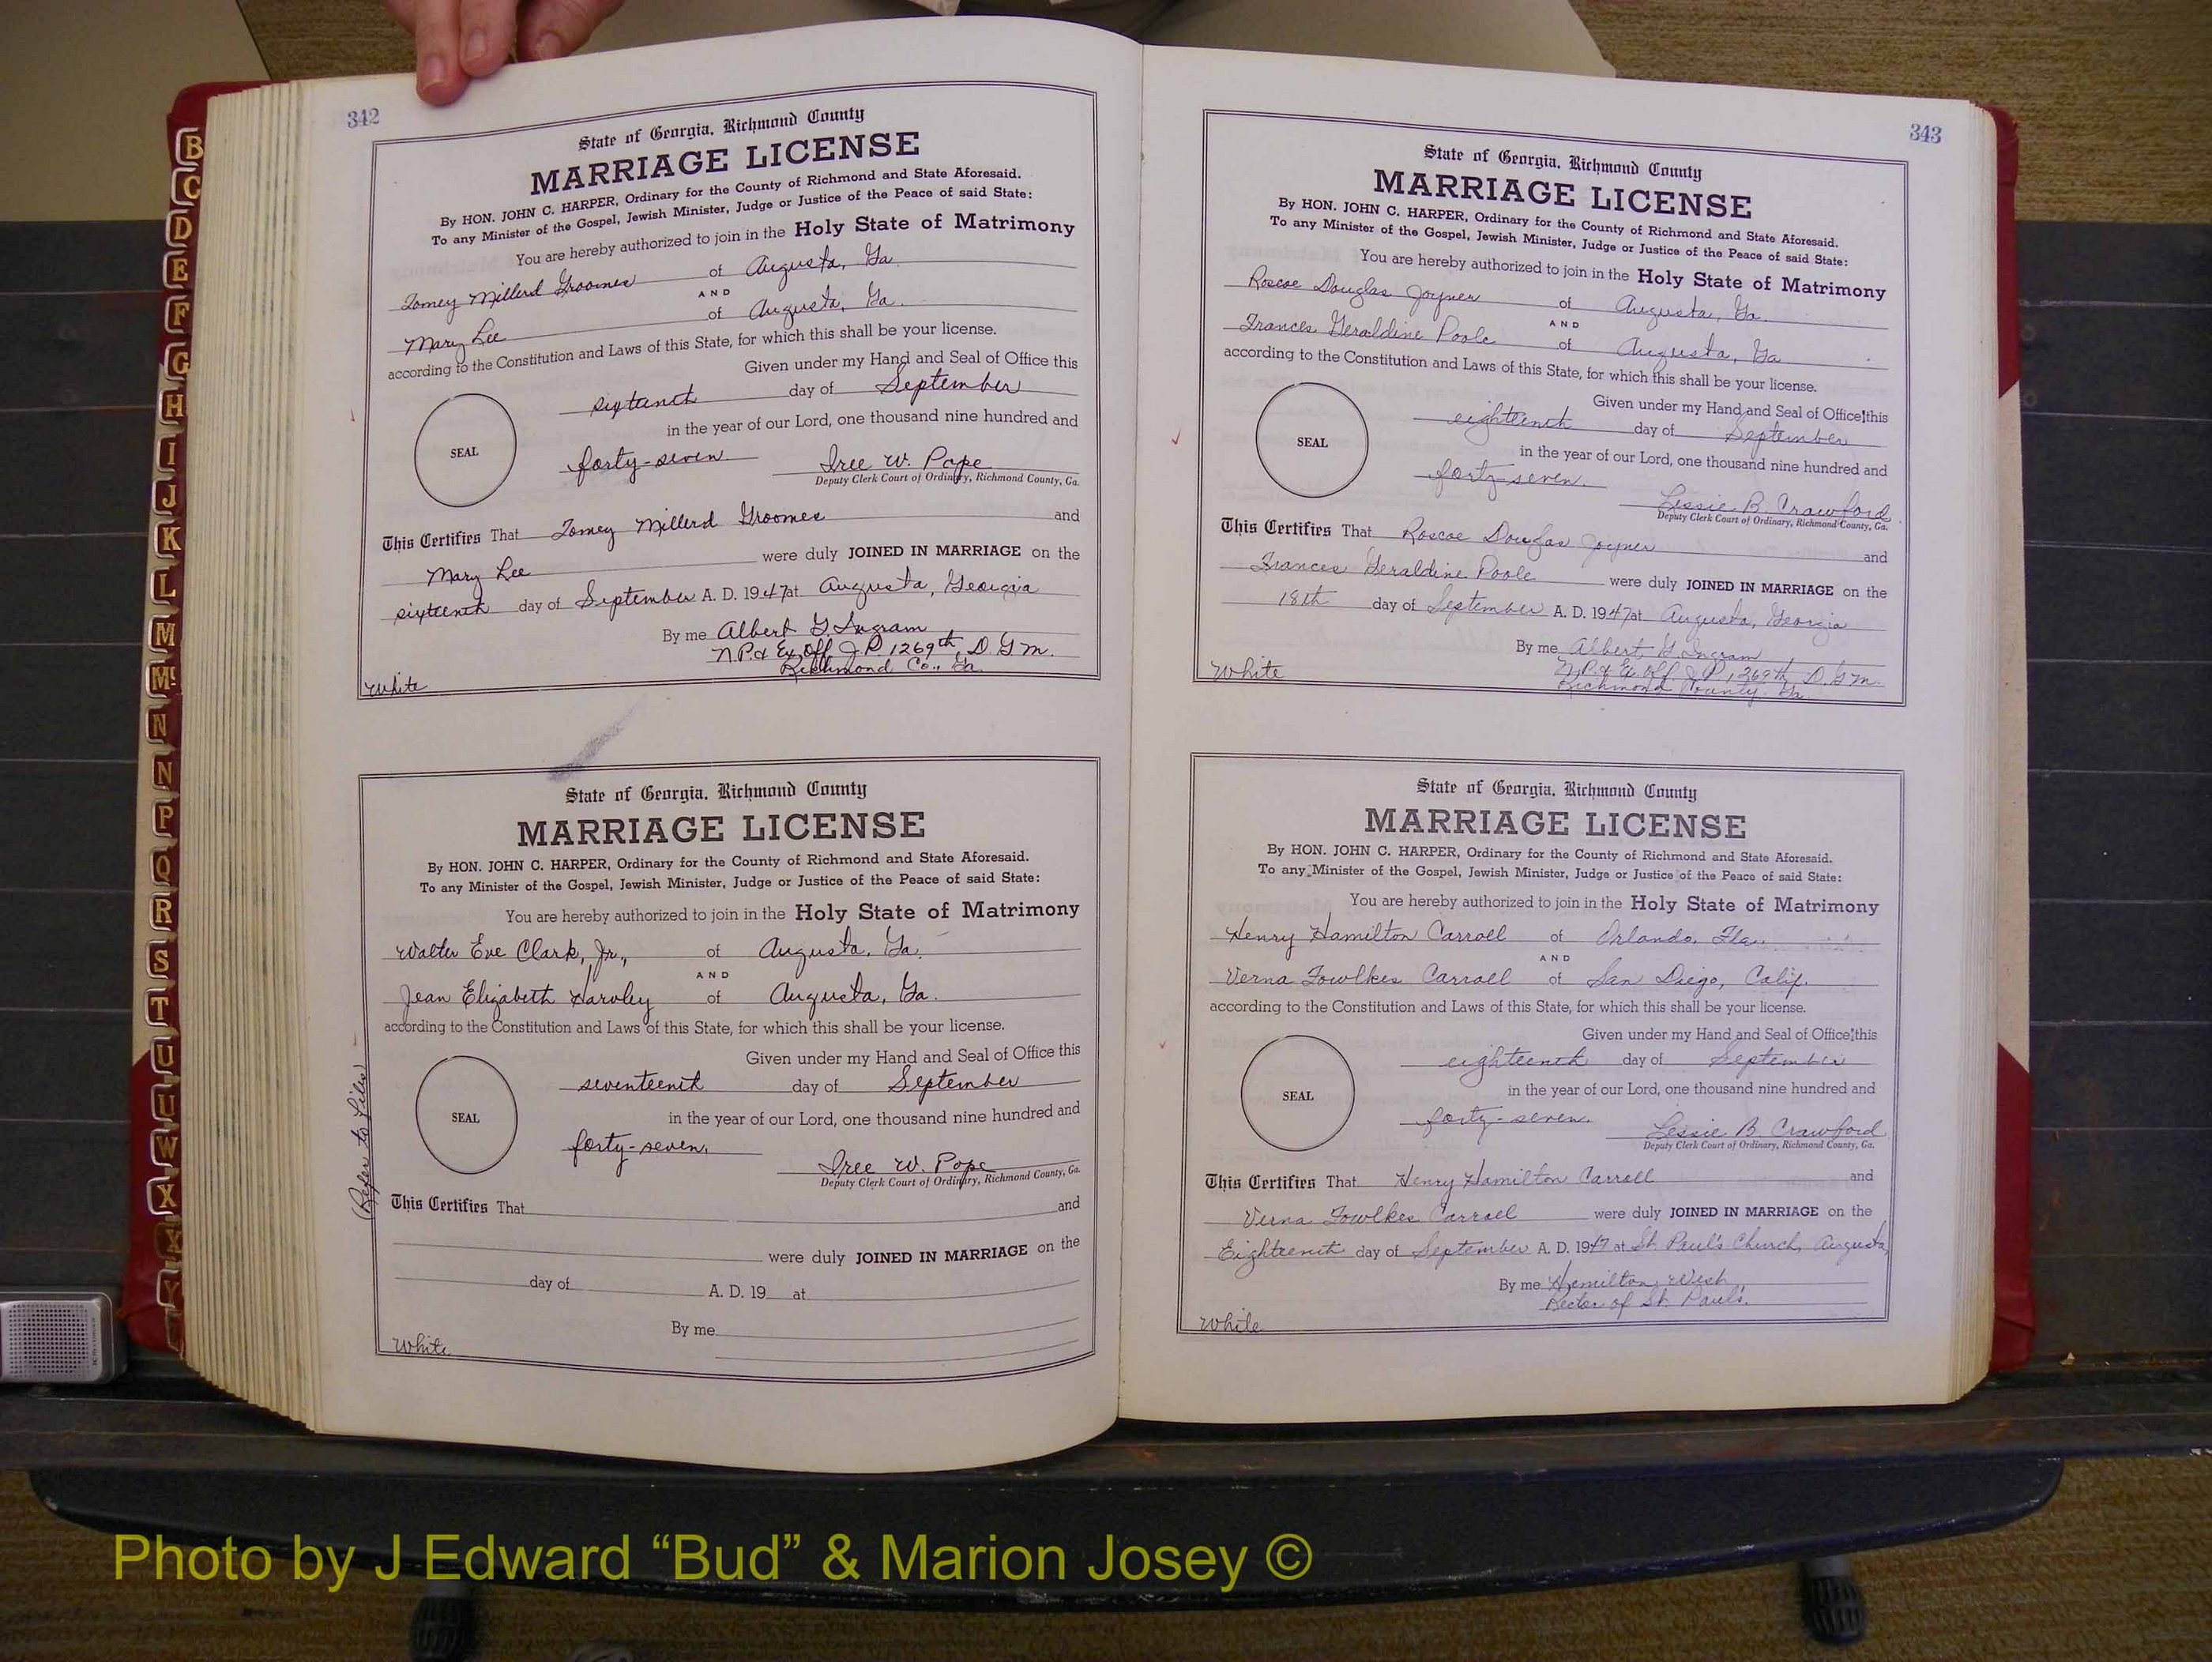 342
State of Georgia, Richmond County
MARRIAGE LICENSE
By HON. JOHN C. HARPER, Ordinary for the County of Richmond and State Aforesaid.
To any Minister of the Gospel, Jewish Minister, Judge or Justice of the Peace of said State:
You are hereby authorized to join in the Holy State of Matrimony
Tomey Millerd Groomes of Augusta, Ga.
AND
Mary Lee of Augusta, Ga.
according to the Constitution and Laws of this State, for which this shall be your license.
Given under my Hand and Seal of Office this
sixteenth day of September
in the year of our Lord, one thousand nine hundred and
SEAL
forty-seven Iree W. Pope
Deputy Clerk Court of Ordinary, Richmond County, Ga.
This Certifies That Tomey Millerd Groomes and
Mary Lee were duly JOINED IN MARRIAGE on the
sixteenth day of September A. D. 1947 at Augusta, Georgia
By me Albert G. Ingram
N.P. & Ex. Off. J.P. 1269th, D. G. M.
Richmond Co., Ga.
White
State of Georgia, Richmond County
MARRIAGE LICENSE
By HON. JOHN C. HARPER, Ordinary for the County of Richmond and State Aforesaid.
To any Minister of the Gospel, Jewish Minister, Judge or Justice of the Peace of said State:
You are hereby authorized to join in the Holy State of Matrimony
Walter Eve Clark, Jr., of Augusta, Ga.
AND
Jean Elizabeth of Augusta, Ga.
according to the Constitution and Laws of this State, for which this shall be your license.
Given under my Hand and Seal of Office this
seventeenth day of September
SEAL
in the year of our Lord, one thousand nine hundred and
forty-seven. Iree W. Pope
Deputy Clerk Court of Ordinary, Richmond County, Ga.
(Refer to Files)
This Certifies That and
were duly JOINED IN MARRIAGE on the
day of A. D. 19 at
By me
White
343
State of Georgia, Richmond County
MARRIAGE LICENSE
By HON. JOHN C. HARPER, Ordinary for the County of Richmond and State Aforesaid.
To any Minister of the Gospel, Jewish Minister, Judge or Justice of the Peace of said State:
You are hereby authorized to join in the Holy State of Matrimony
Roscoe Douglas Joyner of Augusta, Ga.
AND
Frances Geraldine Poole of Augusta, Ga
according to the Constitution and Laws of this State, for which this shall be your license.
Given under my Hand and Seal of Office this
eighteenth day of September
SEAL
in the year of our Lord, one thousand nine hundred and
forty-seven. Lessie B. Crawford
Deputy Clerk Court of Ordinary, Richmond County, Ga.
This Certifies That Roscoe Douglas Joyner and
Frances Geraldine Poole were duly JOINED IN MARRIAGE on the
18th day of September A. D. 1947 at Augusta, Georgia
By me Albert G. Ingram
N.P. & Ex. Off. J.P. 1269th D. G. M.
Richmond County, Ga.
White
State of Georgia, Richmond County
MARRIAGE LICENSE
By HON. JOHN C. HARPER, Ordinary for the County of Richmond and State Aforesaid.
To any Minister of the Gospel, Jewish Minister, Judge or Justice of the Peace of said State:
You are hereby authorized to join in the Holy State of Matrimony
Henry Hamilton Carroll of Orlando, Fla.
AND
Verna Fowlkes Carroll of San Diego, Calif.
according to the Constitution and Laws of this State, for which this shall be your license.
Given under my Hand and Seal of Office this
eighteenth day of September
SEAL
in the year of our Lord, one thousand nine hundred and
forty-seven. Lessie B. Crawford
Deputy Clerk Court of Ordinary, Richmond County, Ga.
This Certifies That Henry Hamilton Carroll and
Verna Fowlkes Carroll were duly JOINED IN MARRIAGE on the
Eighteenth day of September A. D. 1947 at St. Paul's Church, Augusta
By me Hamilton West
Rector of St. Paul's.
White
B
C
D
E
F
G
H
I
J
K
L
M
Mc
N
N
P
Q
R
S
T
U
U
W
X
X
Y
Photo by J Edward “Bud” & Marion Josey ©